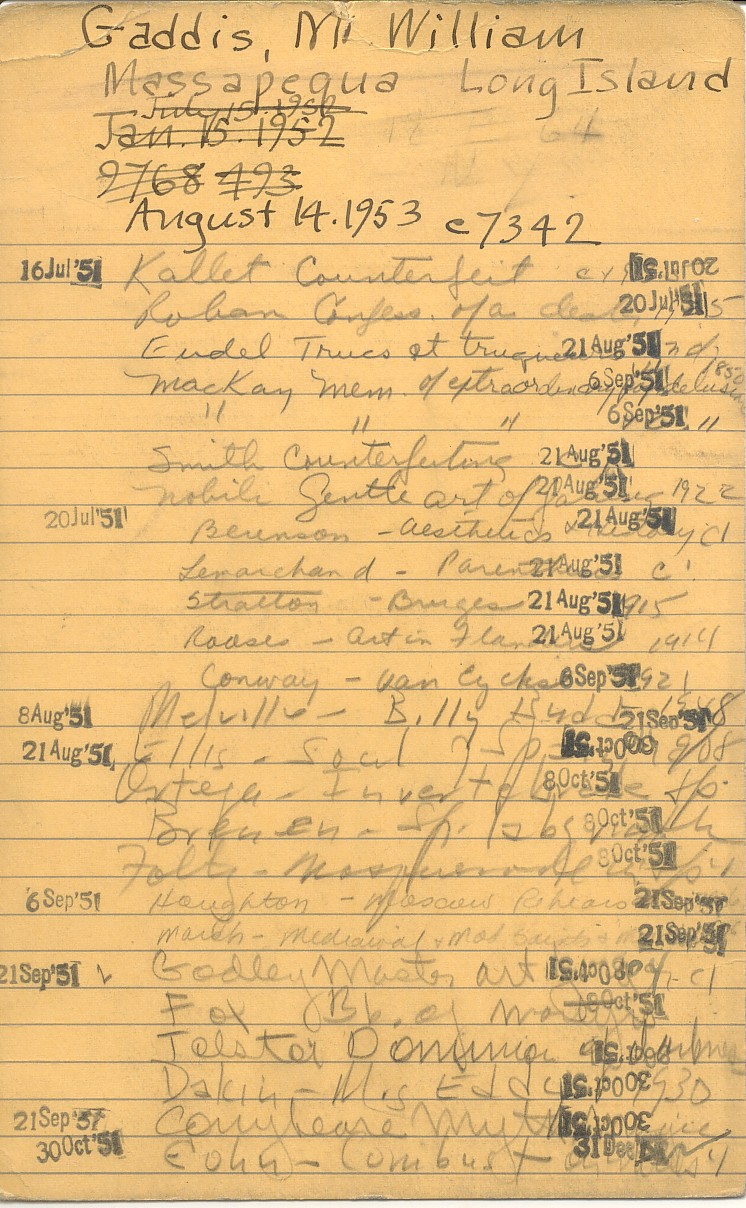 Gaddis, Mr William
Massapequa Long Island
July 15. 1952
Jan. 15. 1952
9768 493
August 14. 1953 c7342
16 Jul '51 Kallet Counterfeit 20 Jul '51
Rohan Confess. of a 20 Jul '51
Eudel Trucs et 21 Aug '51
MacKay Mem. of extraordinary 6 Sep '51 1850
" " " 6 Sep '51 "
Smith Counterfeiting 21 Aug '51
Nobili Gentle art of 21 Aug '51 1922
20 Jul '51 Berenson - Aesthetics & History 21 Aug '51 c1
Lemarchand - 21 Aug '51 c1
Stratton - Bruges 21 Aug '51 1915
Rooses - Art in Flanders 21 Aug '51 1914
Conway - Van Eycks 6 Sep '51 1921
8 Aug '51 Melville - Billy Budd 21 Sep '51 1948
21 Aug '51 Ellis - Soul of Spain 30 Oct '51 1908
Ortega - Invertebrate Sp. 8 Oct '51
Brenen - Sp. Labyrinth 8 Oct '51
8 Oct '51
6 Sep '51 Houghton - Moscow Rehears 21 Sep '51
March - Mediaeval 21 Sep '51
21 Sep '51 Godley Master art 8 Oct '51 c1
Fox Bk. of 8 Oct '51
8 Oct '51
Dakin - Mrs Eddy 30 Oct '51 1930
21 Sep '51 Conybeare Myth 30 Oct '51
30 Oct '51 31 Dec